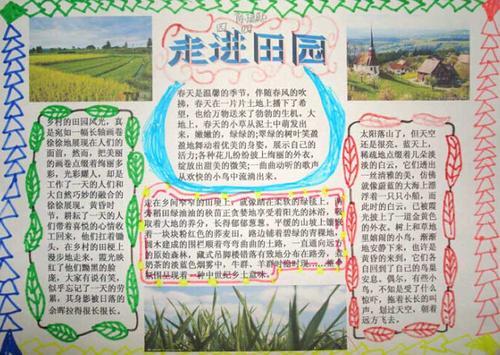 四、四
走进田园
春天是温馨的季节，伴随春风的吹
拂，春天在一片片土地上播下了希
望，也给万物送来了勃勃的生机。大
地上，春天的小草从泥土中萌发出
来，嫩嫩的，绿绿的;翠绿的树叶笑盈
盈地舞动着优美的身姿，展示自己的
活力;各种花儿纷纷披上绚丽的外衣，
绽放出甜美的微笑;一曲曲动听的歌声
从欢快的小鸟中流淌出来。
乡村的田园风光，真
是宛如一幅长轴画卷
徐徐地展现在人们的
面前，然而，把美丽
的画卷点缀着绚丽多
彩，光彩耀人，却是
工作了一天的人们和
大自然巧妙的融合的
徐徐展现。黄昏时
节，耕耘了一天的人
们带着喜悦的心情收
工回来，他们扛着锄
头，在乡村的田埂上
漫步地走来，霞光映
红了他们黝黑的脸
庞，大家有说有笑，
似乎忘记了一天的劳
累，其身影被日落的
余晖拉得很长很长。
走在乡间窄窄的田埂上，就像踏在柔软的绿毯上，两
旁稻田绿油油的秧苗正贪婪地享受着阳光的沐浴，吸
取着大地的养分，长得郁郁葱葱。平缓的山坡上镶嵌
着一块块粉红色的荞麦田，路边铺着碧绿的青稞地，
灌木建成的围栏顺着弯弯曲曲的土路，一直通向远方
的原始森林，藏式吊脚楼错落有致地分布在路旁，煮
奶茶的淡蓝色烟雾中，牛群、羊群时隐时现……
俱呈现着一种中世纪乡土意味。
太阳落山了，但天空
还是很亮，蓝天上，
稀疏地点缀着几朵淡
淡的白云，它们透出
一丝清雅的美，仿佛
就像蔚蓝的大海上漂
浮着一只只小船，而
此时的白云，已被霞
光披上了一道金黄色
的外衣。树上和草地
里嬉闹的小鸟，渐渐
地安静下来，也许是
黄昏的来到，它们各
自回到了自己的鸟巢
安息。偶尔，有些小
鸟，不知是受了什么
惊吓，拖着长长的叫
声，划过天空，朝着
远方飞去。